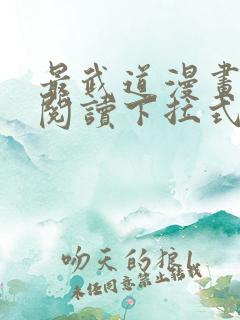 最武道漫畫
閱讀下拉式
吻天的狼1
未经同意禁止转载